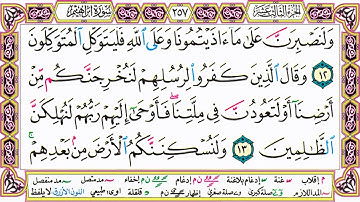 الجزء الثالث عشر ٢٥٧ سورة إبراهيم
وَلَنَصْبِرَنَّ عَلَىٰ مَآ ءَاذَيْتُمُونَا وَعَلَى ٱللَّهِ فَلْيَتَوَكَّلِ ٱلْمُتَوَكِّلُونَ
١٢ وَقَالَ ٱلَّذِينَ كَفَرُوا۟ لِرُسُلِهِمْ لَنُخْرِجَنَّكُم مِّنْ
أَرْضِنَآ أَوْ لَتَعُودُنَّ فِى مِلَّتِنَا فَأَوْحَىٰٓ إِلَيْهِمْ رَبُّهُمْ لَنُهْلِكَنَّ
ٱلظَّـٰلِمِينَ ١٣ وَلَنُسْكِنَنَّكُمُ ٱلْأَرْضَ مِنۢ بَعْدِهِمْ